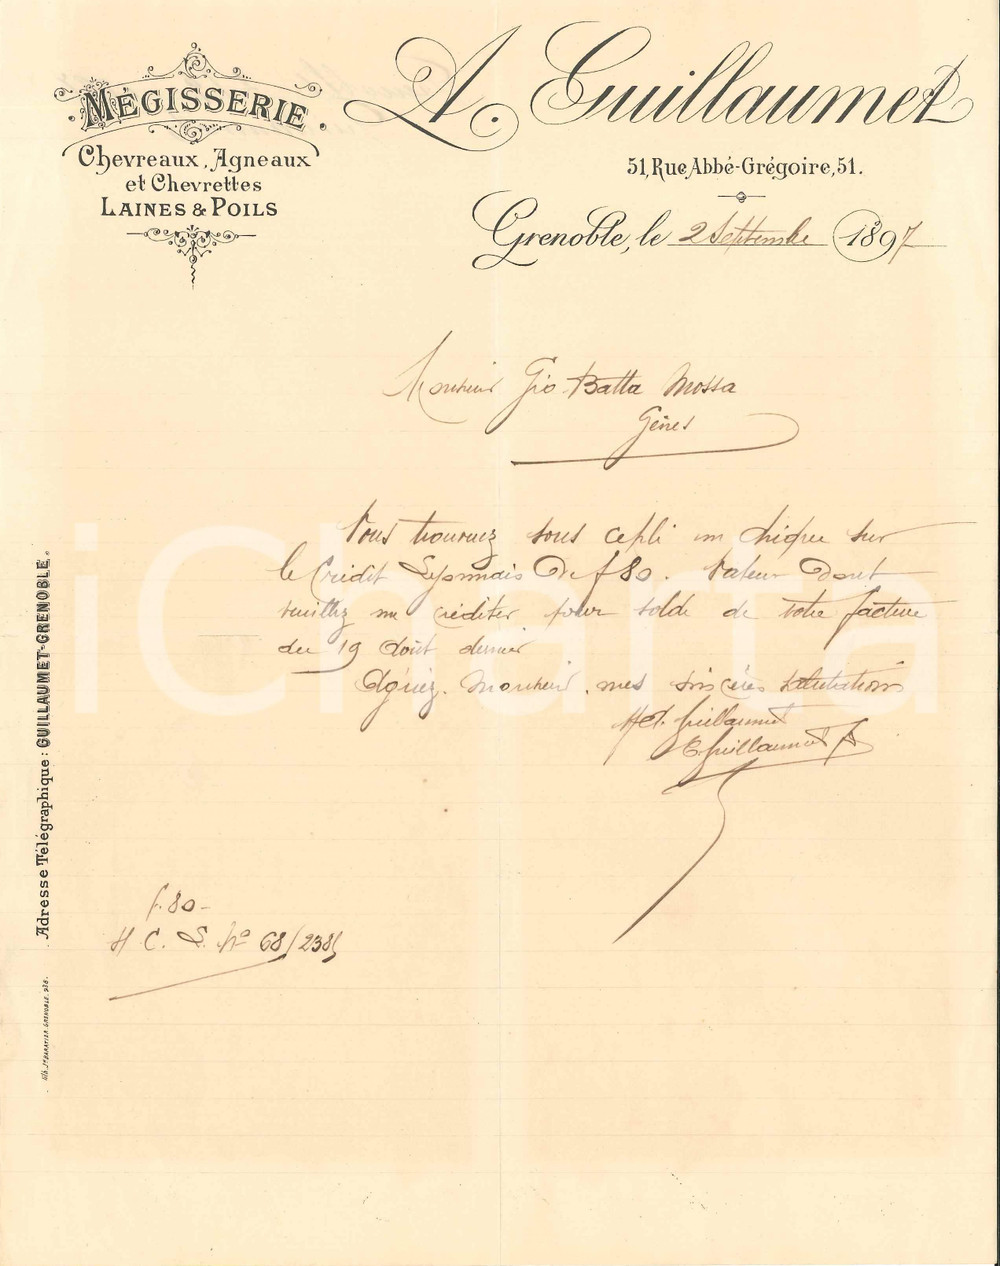 MÉGISSERIE.
Chevreaux, Agneaux
et Chevrettes
LAINES & POILS
A. Guillaumet
51, Rue Abbé-Grégoire, 51.
Grenoble, le 2 Septembre 1897
Monsieur Gio Batta Mossa
Gênes
Vous trouverez sous ce pli un chèque sur
le Crédit Lyonnais De f 80. Valeur Dont
veuillez me créditer pour solde de votre facture
du 19 Août dernier
Agréez, Monsieur, mes sincères salutations
Guillaumet
Guillaumet
f. 80 -
C. L. No 68/238
Adresse Télégraphique: GUILLAUMET-GRENOBLE.
GRENOBLE
iCharta